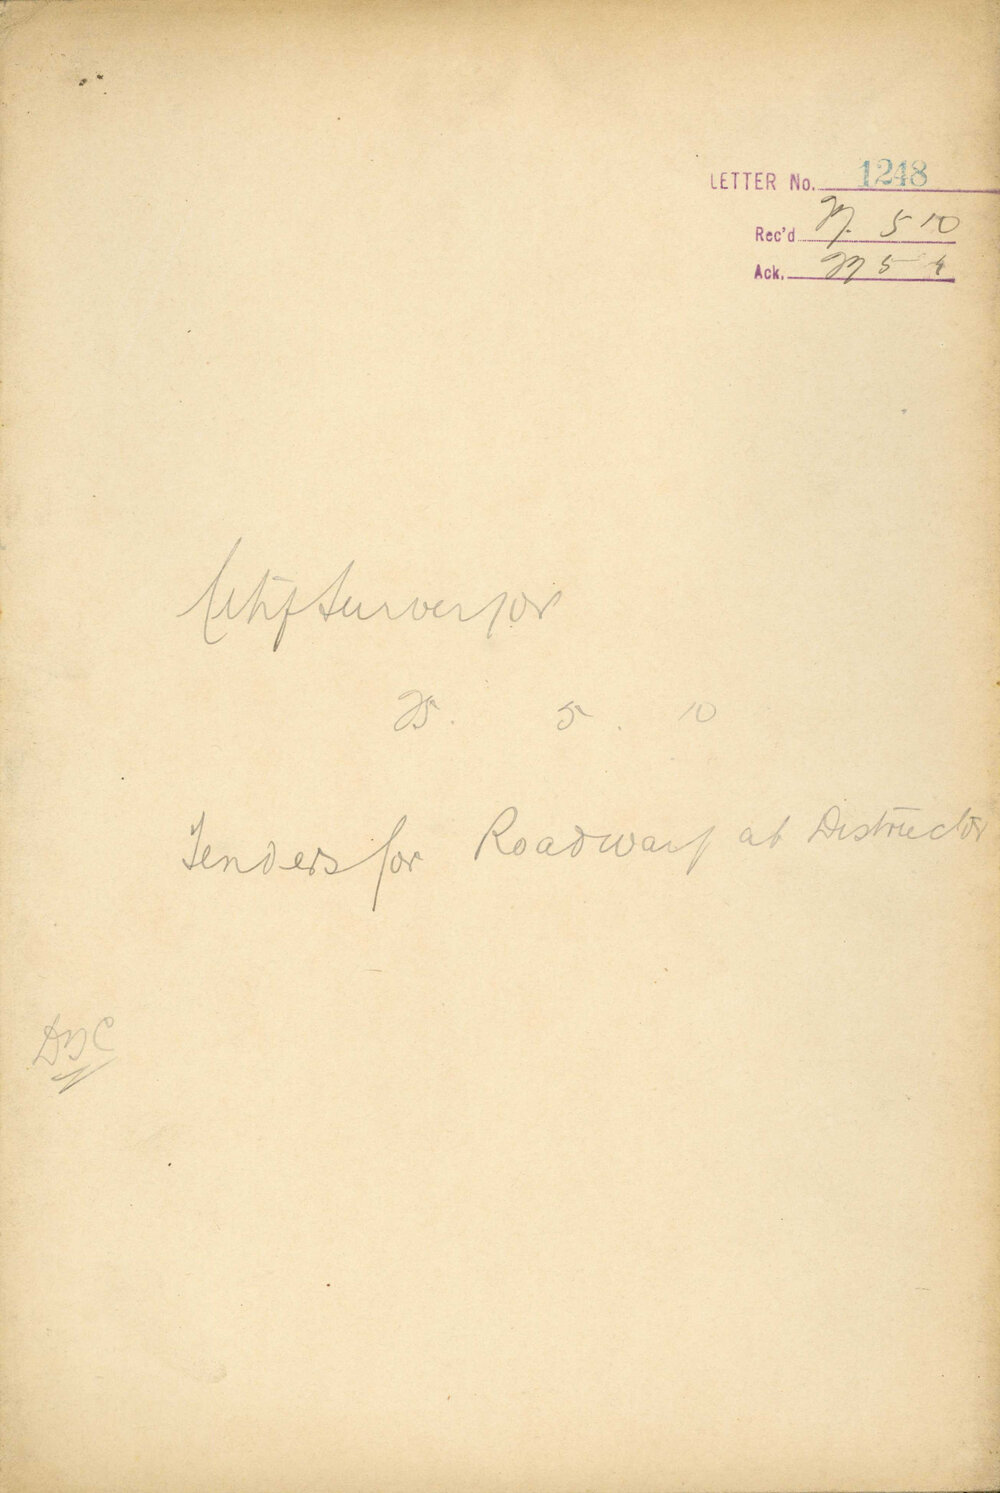 LETTER No. 1248
Rec'd 5 10
Ack. 5
City Surveyor
25. 5. 10
Tenders for Roadway at Destructor